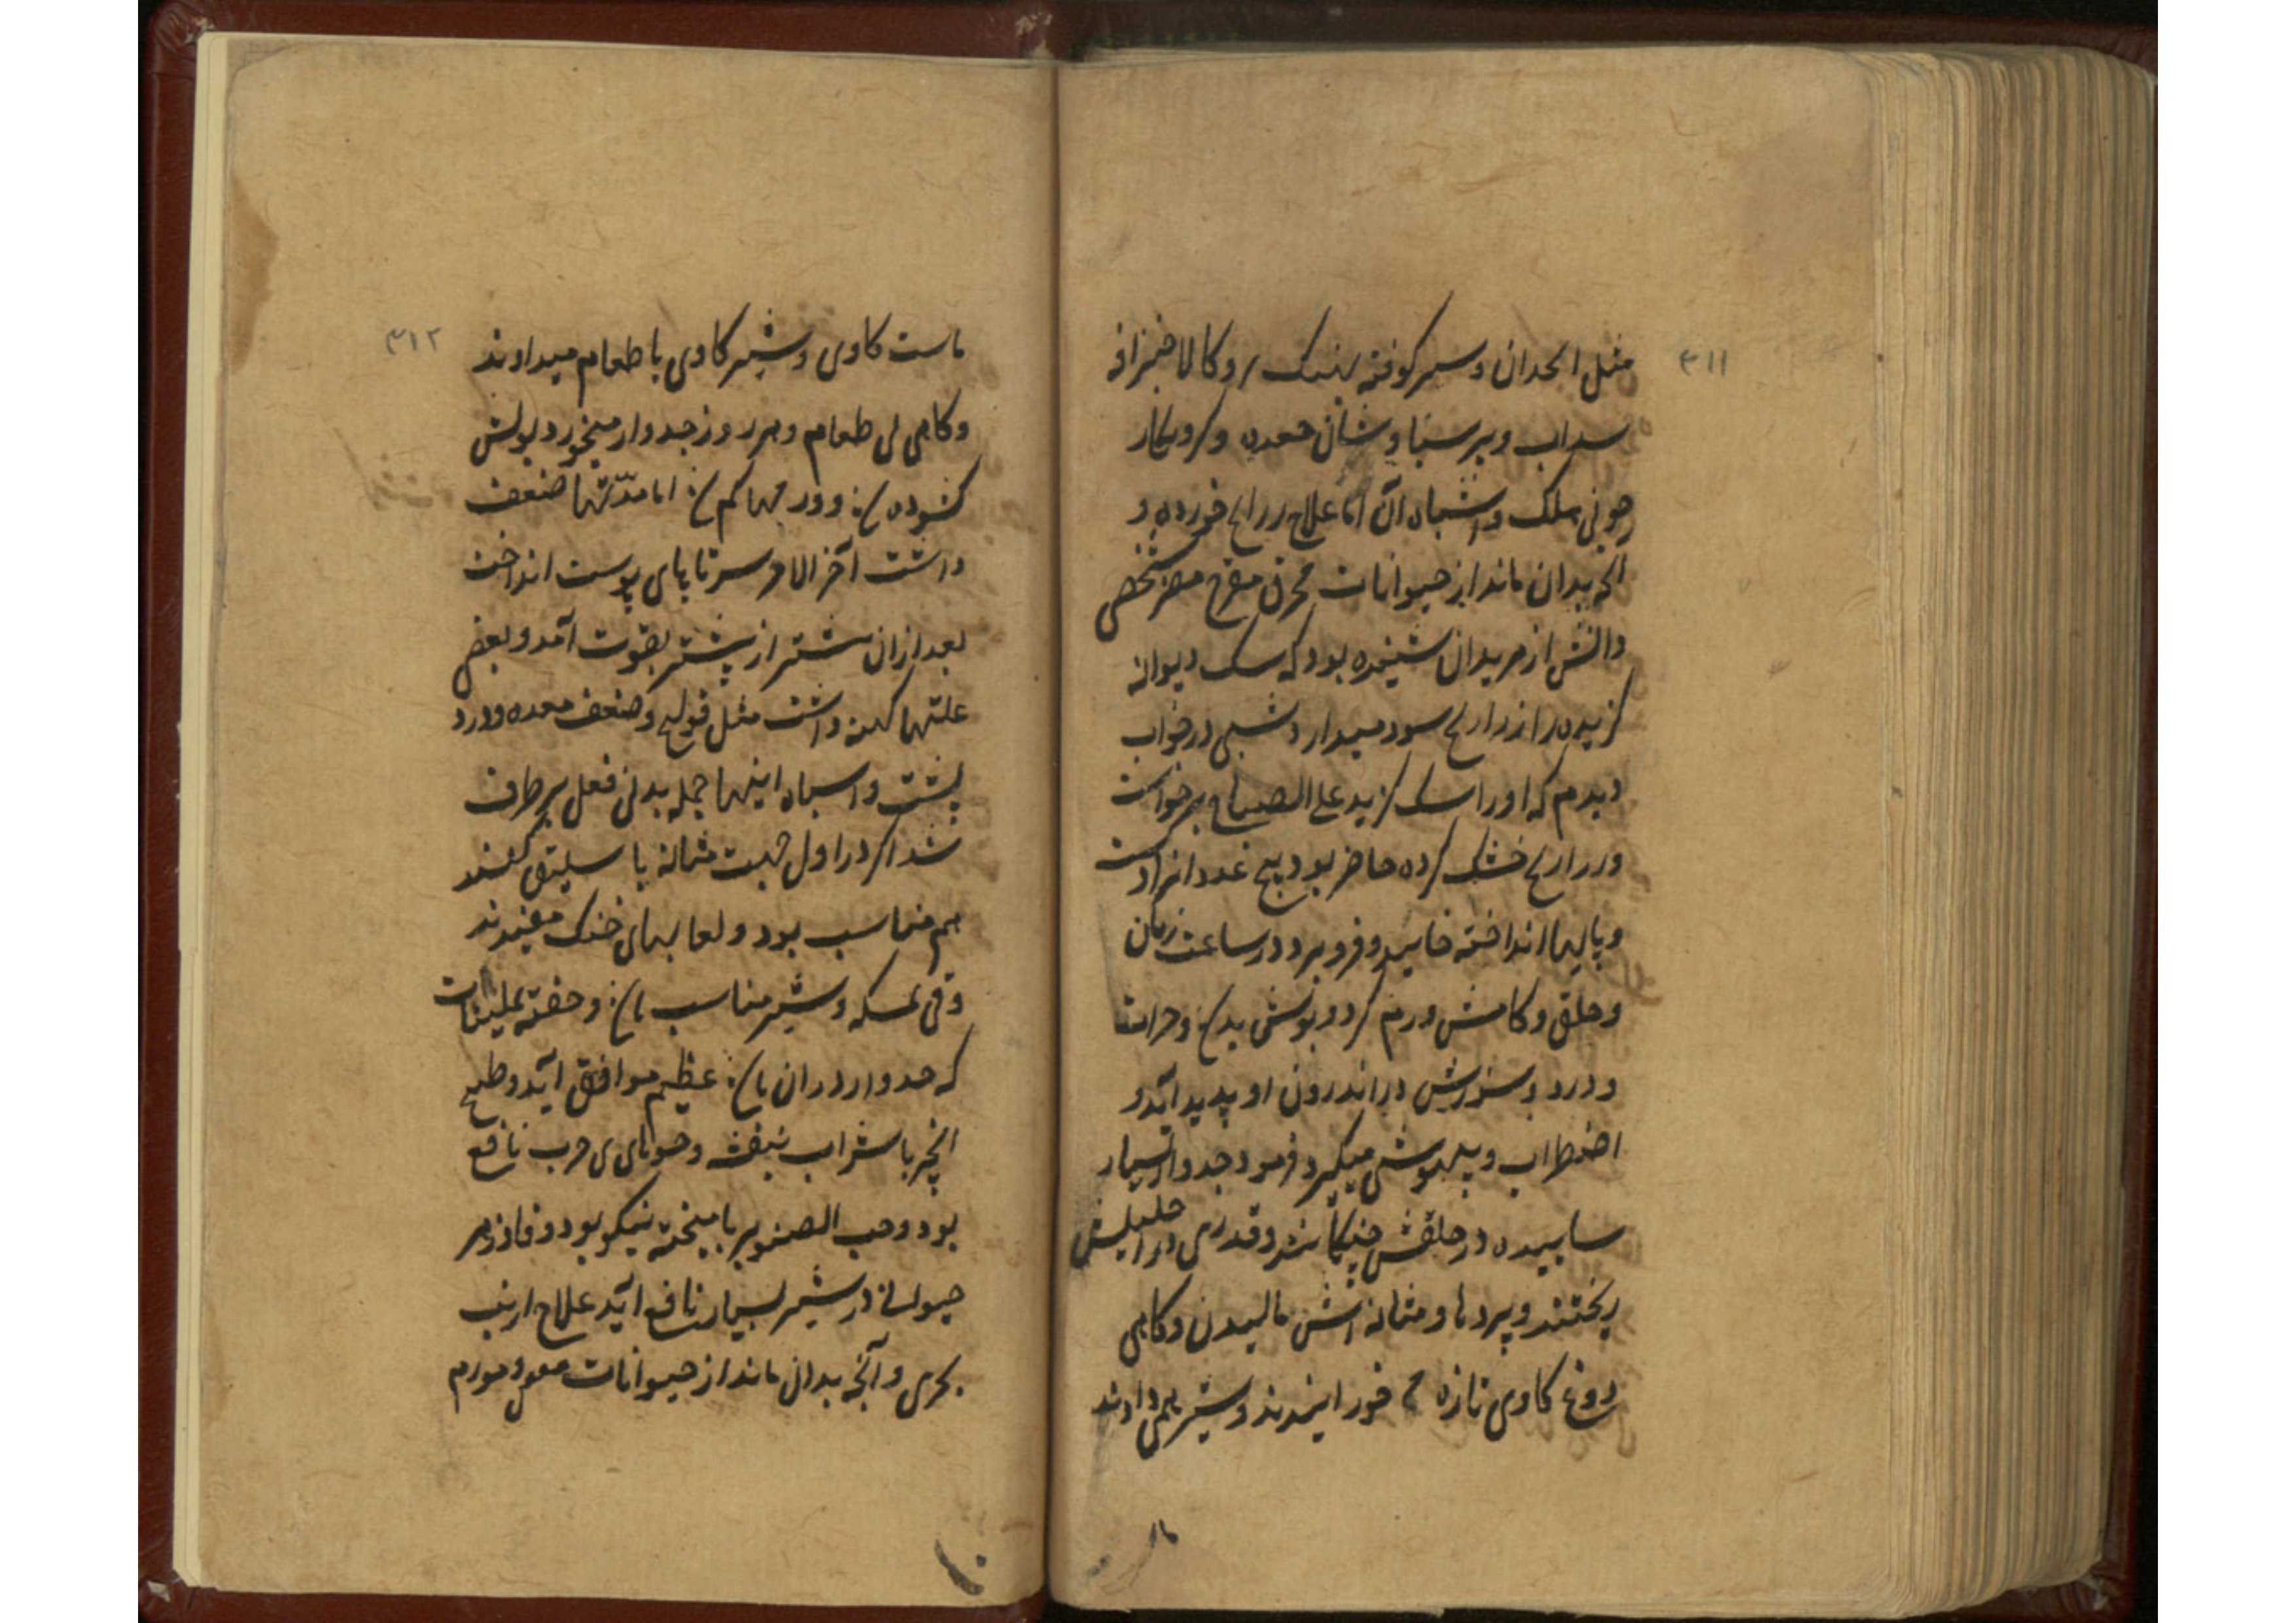 ۳۱۱
مثل انجدان و سیر کوفته
سداب و برسیاوشان جعده و
و اشباه آن اما علاج ذراریح خورده و
آنچه بدان ماند از حیوانات محرق مقرح مضر شخصی
دانش از مریدان شنیده بود که سک دیوانه
کزیده را ذراریح سود میدارد شبی در خواب
دیدم که او را سک کزید علی الصباح برخواست
و ذراریح خشک کرده حاضر بود پنج عدد از
و پایها انداخته خایید و فرو برد در ساعت زبان
و حلق و کامش ورم کرد و بولش و حرارت
و درد و سوزش در اندرون او پدید آید و
اضطراب و بیهوشی میکرد فرمود جدوار بسیار
ساییده در حلقش چکانند و قدری در احلیلش
ریختند و بر و مثانه اش مالیدن و کاهی
روغ کاوی تازه می خورانیدند و شیر همی دادند
ما
۳۱۲
ماست کاوی و شیر کاوی با طعام میدادند
و کاهی بی طعام و هر روز جدوار میخورد بولش
کشوده و ورمها کم اما مدّتها ضعف
داشت آخر الامر سر تا پای پوست انداخت
بعد از ان بیشتر از پیشتر بقوت آمد و بعض
علتها کهنه داشت مثل قولنج و ضعف معده و درد
پشت و اشباه اینها جمله بدنی فعل برطرف
شد اکر در اول جهت مثانه باسلیق کنند
هم مناسب بود و لعابهای خنک مفیدند
وقی بمسکه و شیر مناسب و حقنه بملینات
که جدوار در ان عظیم موافق آید و طبیخ
انجیر با شراب بنفشه و حسوهای چرب نافع
بود و حب الصنوبر با میبختج نیکو بود و فادزهر
حیوانی در شیر بسیار نافع آید علاج ارنب
بحری و آنچه بدان ماند از حیوانات و مورم